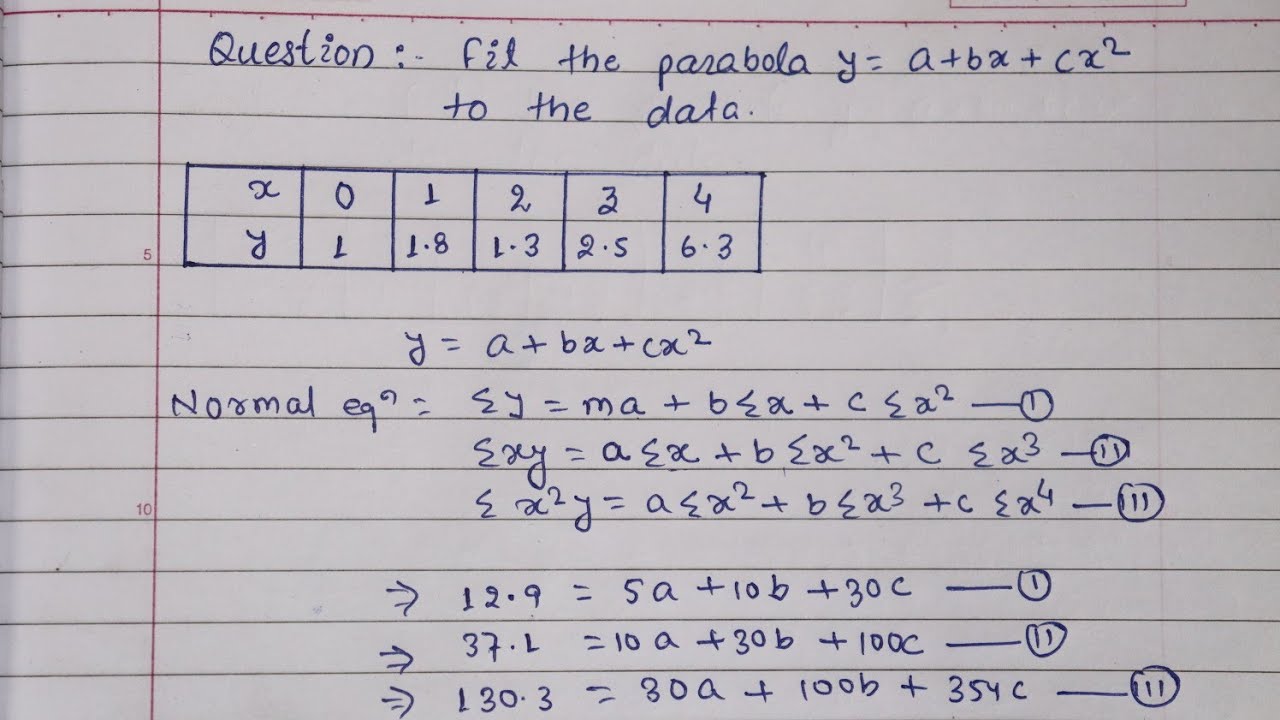 Question :- Fit the parabola y = a+bx+cx²
to the data.
x 0 1 2 3 4
y 1 1.8 1.3 2.5 6.3
5
y = a+bx+cx²
Normal eqⁿ = Σy = ma + bΣx + cΣx² — Ⓘ
Σxy = aΣx + bΣx² + c Σx³ — (II)
Σx²y = aΣx² + bΣx³ + c Σx⁴ — (III)
10
⇒ 12.9 = 5a +10b +30c — Ⓘ
⇒ 37.1 =10a +30b +100c — (II)
⇒ 130.3 = 30a + 100b + 354c — (III)